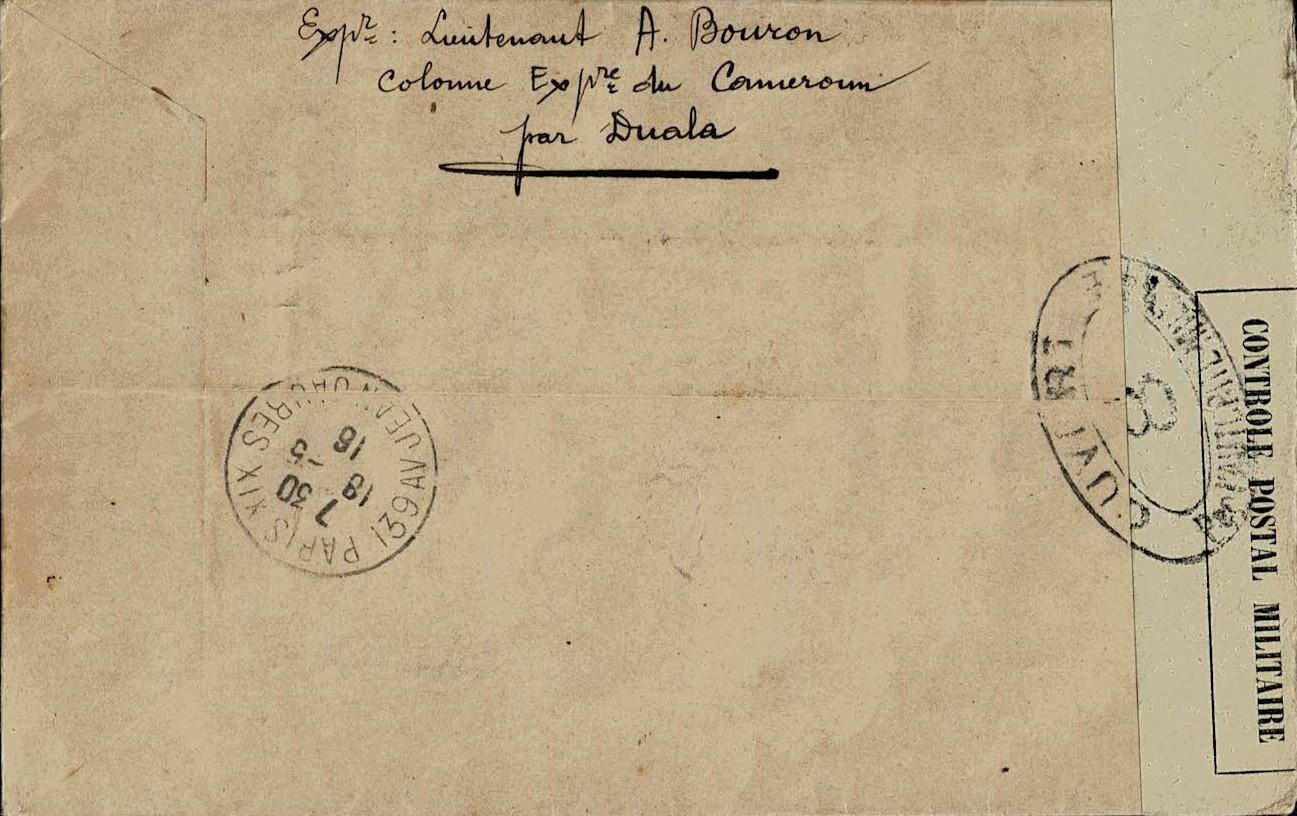 Expre : Lieutenant A. Bouron
Colonne Expre du Cameroun
par Duala
PARIS XIX
139 AV JEAN JAURES
7 30
19 -5
16
OUVERT
8
CONTROLE POSTAL MILITAIRE